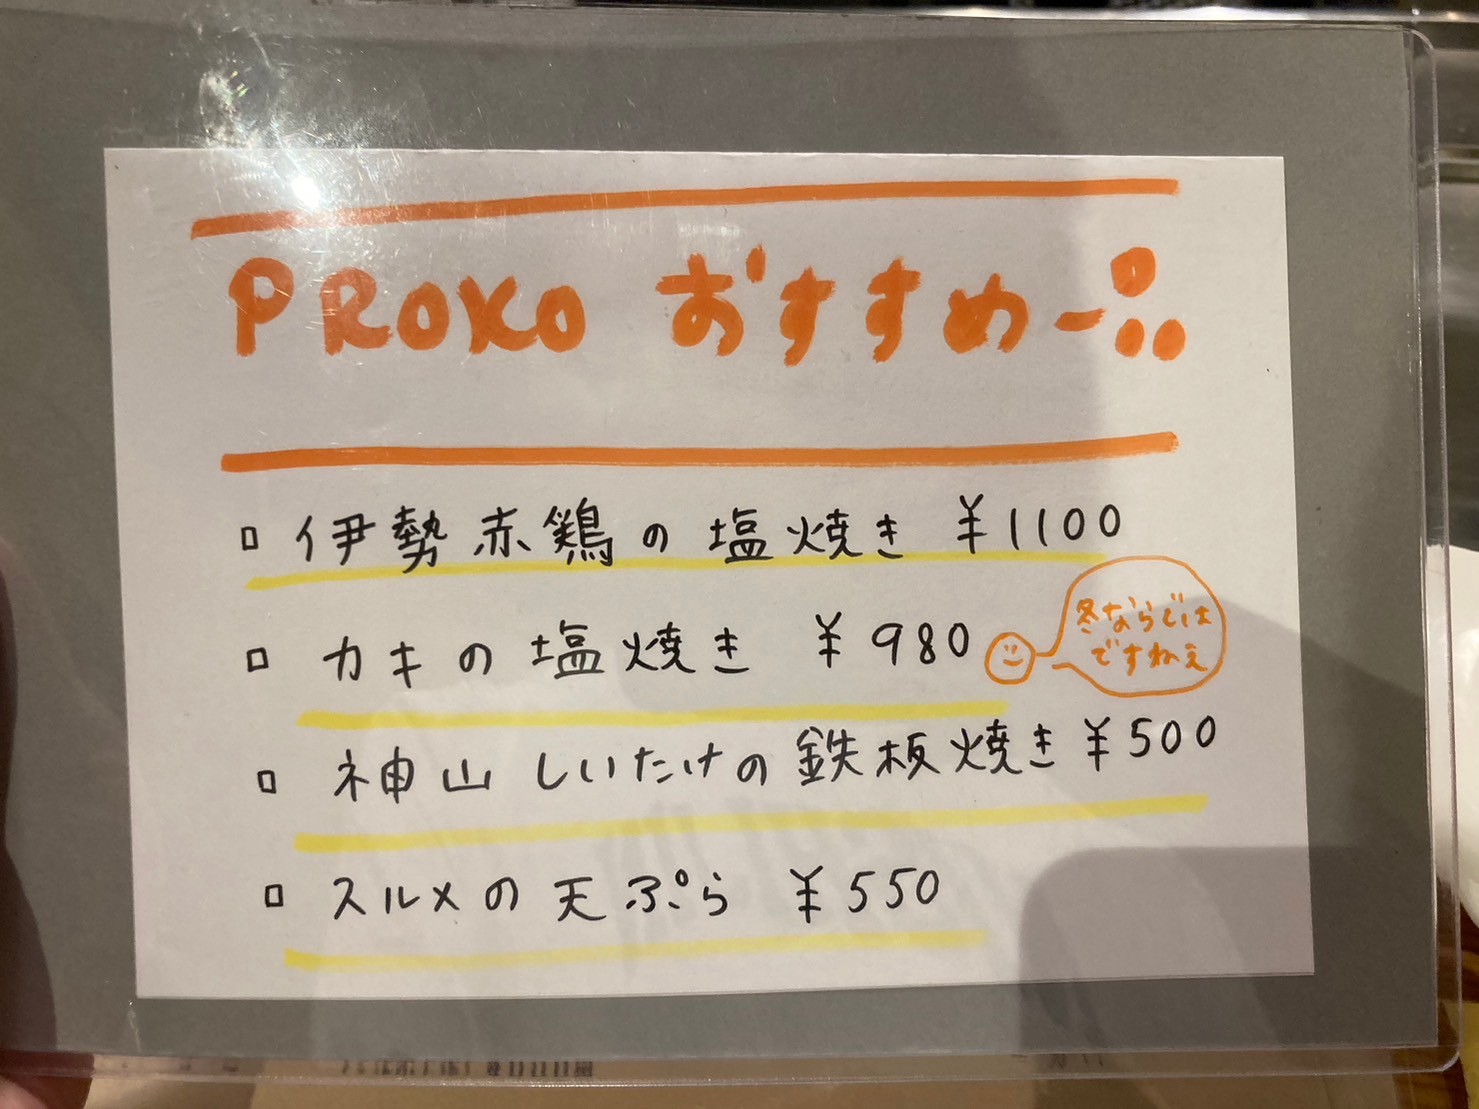 PROKO おすすめー
□ 伊勢赤鶏の塩焼き ¥1100
□ カキの塩焼き ¥980
冬ならでは
ですねぇ
□ 神山しいたけの鉄板焼き ¥500
□ スルメの天ぷら ¥550